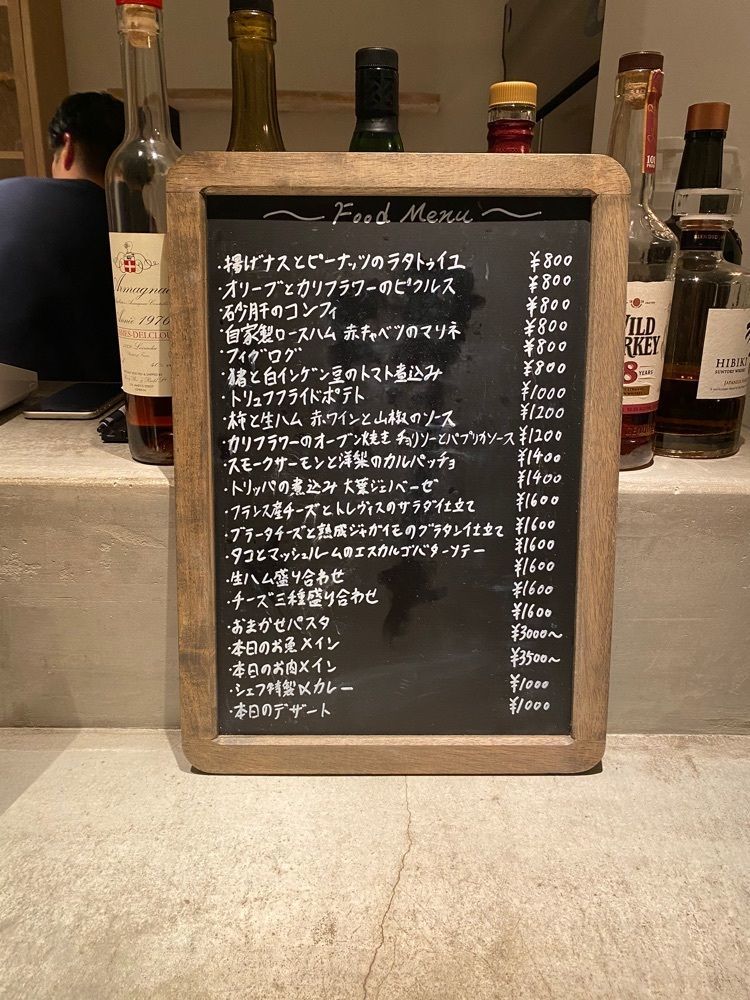 Food Menu
・揚げナスとピーナッツのラタトゥイユ ¥800
・オリーブとカリフラワーのピクルス ¥800
・砂肝のコンフィ ¥800
・自家製ロースハム 赤キャベツのマリネ ¥800
・フィグログ ¥800
・猪と白インゲン豆のトマト煮込み ¥800
・トリュフフライドポテト ¥1000
・柿と生ハム 赤ワインと山椒のソース ¥1200
・カリフラワーのオーブン焼き チョリソーとパプリカソース ¥1200
・スモークサーモンと洋梨のカルパッチョ ¥1400
・トリッパの煮込み 大葉ジェノベーゼ ¥1400
・フランス産チーズとトレヴィスのサラダ仕立て ¥1600
・ブラータチーズと熟成ジャガイモのグラタン仕立て ¥1600
・タコとマッシュルームのエスカルゴバターソテー ¥1600
・生ハム盛り合わせ ¥1600
・チーズ三種盛り合わせ ¥1600
・おまかせパスタ ¥1600
・本日のお魚メイン ¥3000~
・本日のお肉メイン ¥3500~
・シェフ特製〆カレー ¥1000
・本日のデザート ¥1000
Armagnac
1976
WILD
RKEY
8
YEARS
101
HIBIKI
SUNTORY WHISKY